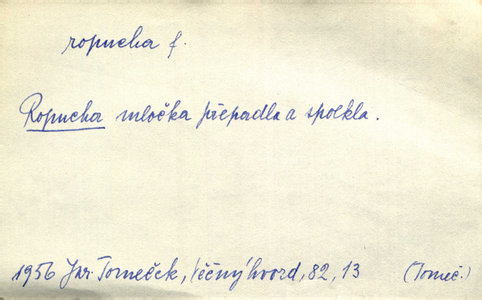 ropucha f.
Ropucha mločka přepadla a spolkla.
1956 Jar. Tomeček, Věčný hvozd, 82, 13 (Tomeč.)